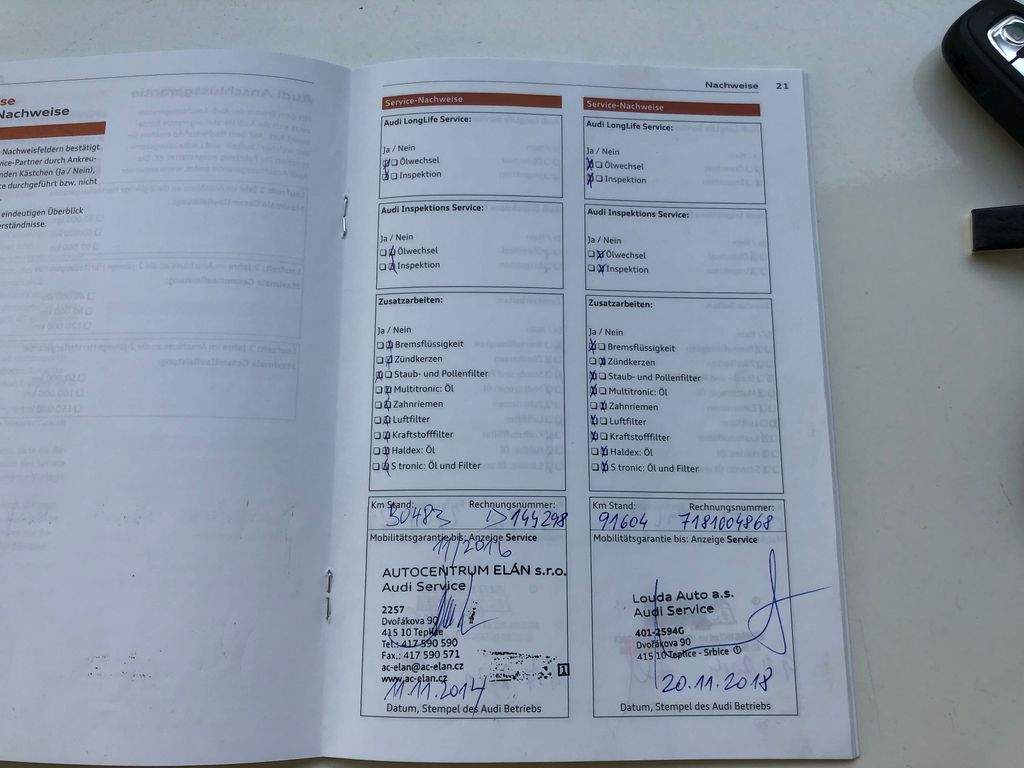 se
Nachweise
Nachweisfeldern bestätigt
vice-Partner durch Ankreu-
nden Kästchen (Ja / Nein),
te durchgeführt bzw. nicht
eindeutigen Überblick
erständnisse.
Nachweise 21
Service-Nachweise
Audi LongLife Service:
Ja / Nein
Ölwechsel
Inspektion
Audi Inspektions Service:
Ja / Nein
Ölwechsel
Inspektion
Zusatzarbeiten:
Ja / Nein
Bremsflüssigkeit
Zündkerzen
Staub- und Pollenfilter
Multitronic: Öl
Zahnriemen
Luftfilter
Kraftstofffilter
Haldex: Öl
S tronic: Öl und Filter
Km Stand: Rechnungsnummer:
30483 D144298
Mobilitätsgarantie bis: Anzeige Service
11/2016
AUTOCENTRUM ELÁN s.r.o.
Audi Service
2257
Dvořákova 90
415 10 Teplice
Tel.: 417 590 590
Fax.: 417 590 571
ac-elan@ac-elan.cz
www.ac-elan.cz
1
11.11.2014
Datum, Stempel des Audi Betriebs
Service-Nachweise
Audi LongLife Service:
Ja / Nein
Ölwechsel
Inspektion
Audi Inspektions Service:
Ja / Nein
Ölwechsel
Inspektion
Zusatzarbeiten:
Ja / Nein
Bremsflüssigkeit
Zündkerzen
Staub- und Pollenfilter
Multitronic: Öl
Zahnriemen
Luftfilter
Kraftstofffilter
Haldex: Öl
S tronic: Öl und Filter
Km Stand: Rechnungsnummer:
91604 7181004868
Mobilitätsgarantie bis: Anzeige Service
Louda Auto a.s.
Audi Service
401-2594G
Dvořákova 90
415 10 Teplice - Srbice ①
20.11.2018
Datum, Stempel des Audi Betriebs